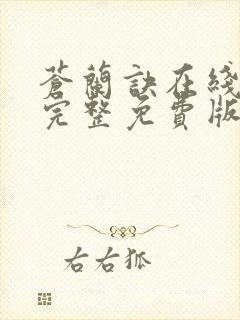 蒼蘭訣在綫
完整免費版
右右狐